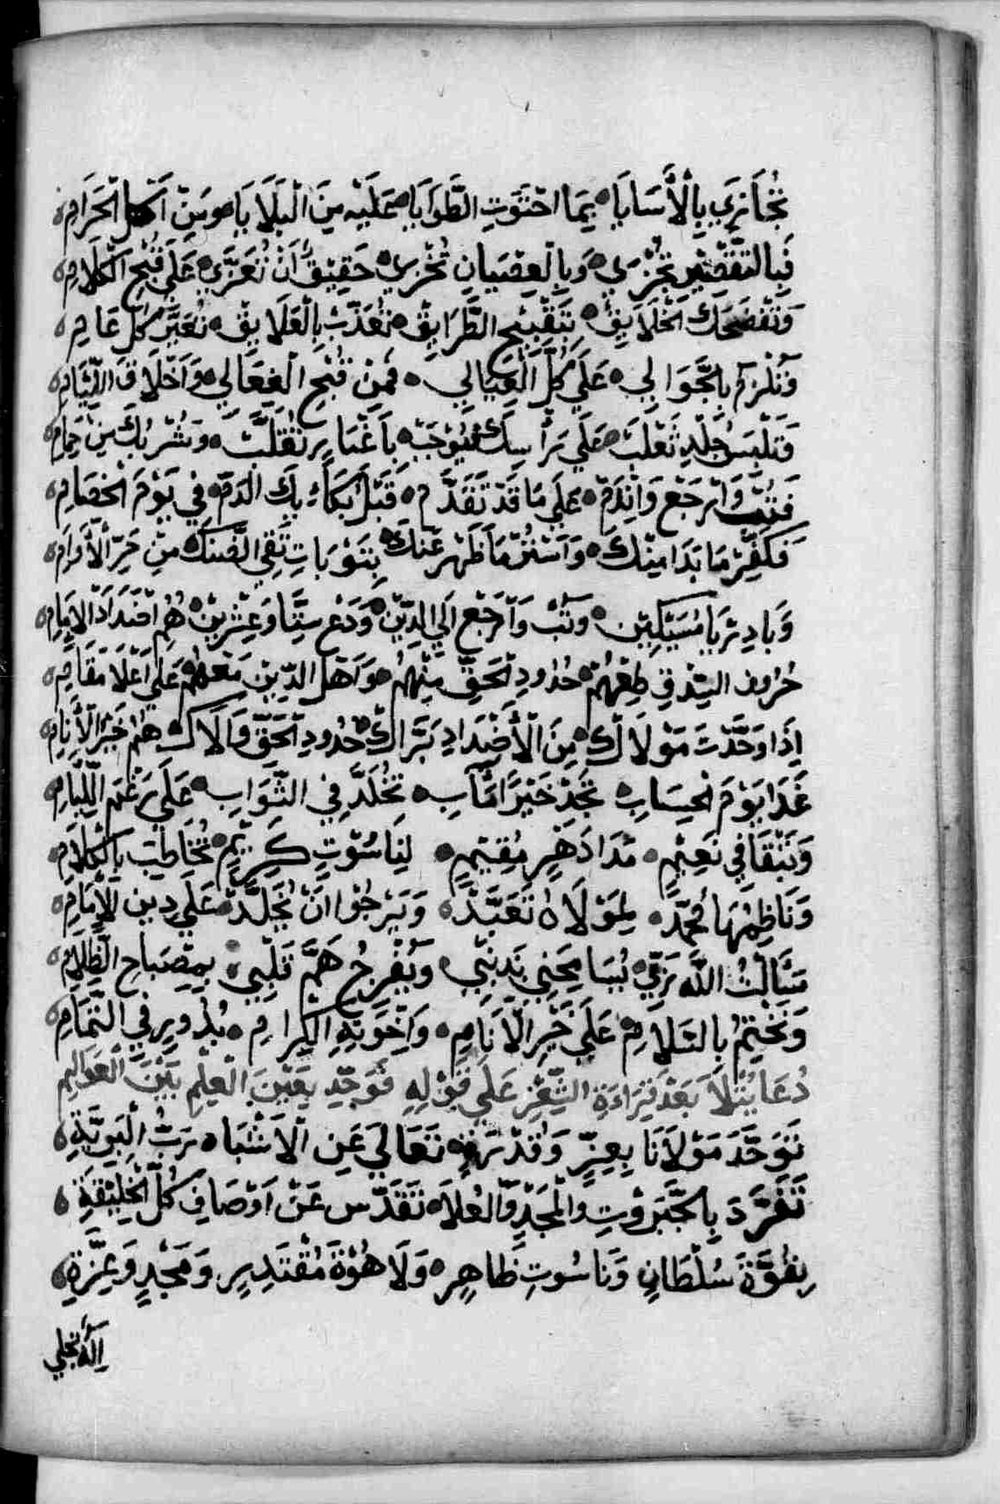 تُجَازَي بِالْأَسَايَا ۰ بِمَا احْتَوَتِ الطَّوَايَا ۰ عَلَيْهِ مِنَ الْبَلَايَا ۰ وَمِنْ أَكْلِ الْحَرَامِ ۰
فَبِالتَّقْصِيرِ تُجْزَي ۰ وَبِالْعِصْيَانِ تُخْزَي ۰ حَقِيقٌ أَنْ تُعَزَّي ۰ عَلَي قُبْحِ الْكَلَامِ ۰
وَتَفْضَحَكَ الْخَلَايِقْ ۰ بِتَقْبِيحِ الطَّرَايِقْ ۰ تُعَذَّبْ بِالْعَلَايِقْ ۰ تُعَيَّرْ كُلَّ عَامِ ۰
وَتُلْزَمْ بِالْجَوَالِي ۰ عَلَي كُلِّ الْعِيَالِي ۰ فَمِنْ قُبْحِ الْفِعَالِي ۰ وَأَخْلَاقِ اللِّيَامِ ۰
وَتَلْبَسُ جِلْدِ ثَعْلَبْ ۰ عَلَي رَأْسِكْ بِتُوجَبْ ۰ بِأَغْيَارٍ تُقَلَّبْ ۰ وَشُرْبُكَ مِنْ حِمَامِ ۰
فَتُبْ وَارْجَعْ وَانْدَمْ ۰ عَلَي مَا قَدْ تَقَدَّمْ ۰ قَبْلَ بُكَاءِ يِكَ الدَمْ ۰ فِي يَوْمَ الْخِصَامِ ۰
فَكَفِّرْ مَا بَدَا مِنْكَ ۰ وَاسْتُرْ مَا ظَهَرْ عَنْكَ ۰ بِتَوْبَاتٍ تَقِي الضَّنْكَ ۰ مِنْ حَرِّ الْأُوَامِ ۰
وَبَادِرْ يَا مُسَيْكِينْ ۰ وَتُبْ وَارْجَعْ إِلَي الدِّيْنْ ۰ وَدَعْ سِتًّا وَعِشْرِيْنْ ۰ هُمْ أَضْدَادْ الْإِمَامِ ۰
حُرُوف السِّدْقِ طِعْهُمْ ۰ حُدُودِ الْحَقِّ مِنْهُمْ ۰ وَاهْلَ الدِّيْنِ مَعْهُمْ ۰ عَلَي أَعْلَا مَقَامِ ۰
إِذَا وَحَّدْتَ مَوْلَاكْ ۰ مِنَ الْأَضْدَادِ بَرَّاكْ ۰ حُدُودِ الْحَقِّ وَالَاكْ ۰ هُمْ خَيْرَ الْأَنَامِ ۰
غَدًا يَوْمَ الْحِسَابِ ۰ تَجِدْ خَيْرًا مَّآبِ ۰ تُخَلَّدْ فِي الثَّوَابِ ۰ عَلَي رَغْمِ اللِّيَامِ ۰
وَتَبْقَا فِي نَعِيْمٍ ۰ مَدَا دَهْرٍ مُقِيْمٍ ۰ لِنَاسُوتٍ كَرِيْمٍ ۰ تُخَاطِبْ بِالْكَلَامِ ۰
وَنَاظِمْهَا مُحَمَّدْ ۰ لِمَوْلَاهُ تَعَبَّدْ ۰ وَيَرْجُوا أَنْ يُخَلَّدْ ۰ عَلَي دِيْنِ الْإِمَامِ ۰
سَأَلْتُ اللَّهَ رَبِّي ۰ يُسَامِحْنِي بِذَنْبِي ۰ وَيُفْرِجْ هَمَّ قَلْبِي ۰ بِمِصْبَاحِ الظَّلَامِ ۰
وَنَخْتِمْ بِالسَّلَامِ ۰ عَلَي خَيْرِ الْأَنَامِ ۰ وَإِخْوَتِهِ الْكِرَامِ ۰ بُدُورٍ فِي التَّمَامِ ۰
دُعَا يُتْلَا بَعْدَ قِرَاءَةِ الشِّعْرِ عَلَي قَوْلِهِ فَوَحِّدْ بِعَيْنِ الْعِلْمِ بَيْنَ الْعَوَالِمِ
تَوَحَّدَ مَوْلَانَا بِعِزٍّ وَقُدْرَةٍ ۰ تَعَالَي عَنِ الْأَشْبَاهِ رَبُّ الْبَرِيَّةِ ۰
تَفَرَّدَ بِالْجَبَرُوْتِ وَالْمَجْدِ وَّالْعُلَا ۰ تَقَدَّسَ عَنْ أَوْصَافِ كُلِّ الْخَلِيْقَةِ ۰
بِقُوَّةِ سُلْطَانٍ وَنَاسُوتِ ظَاهِرٍ ۰ وَلَاهُوْةَ مُقْتَدِيرٍ وَمَجْدٍ وَعِزَّةِ ۰
إِلَهٌ تَجَلَّي